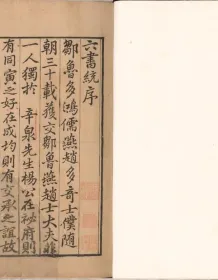 六書統序
鄒魯多鴻儒燕趙多奇士僕隨
朝三十載獲交鄒魯燕趙士大夫非
一人獨於辛泉先生楊公在祕府則
有同寅之好在成均則有交承之誼故